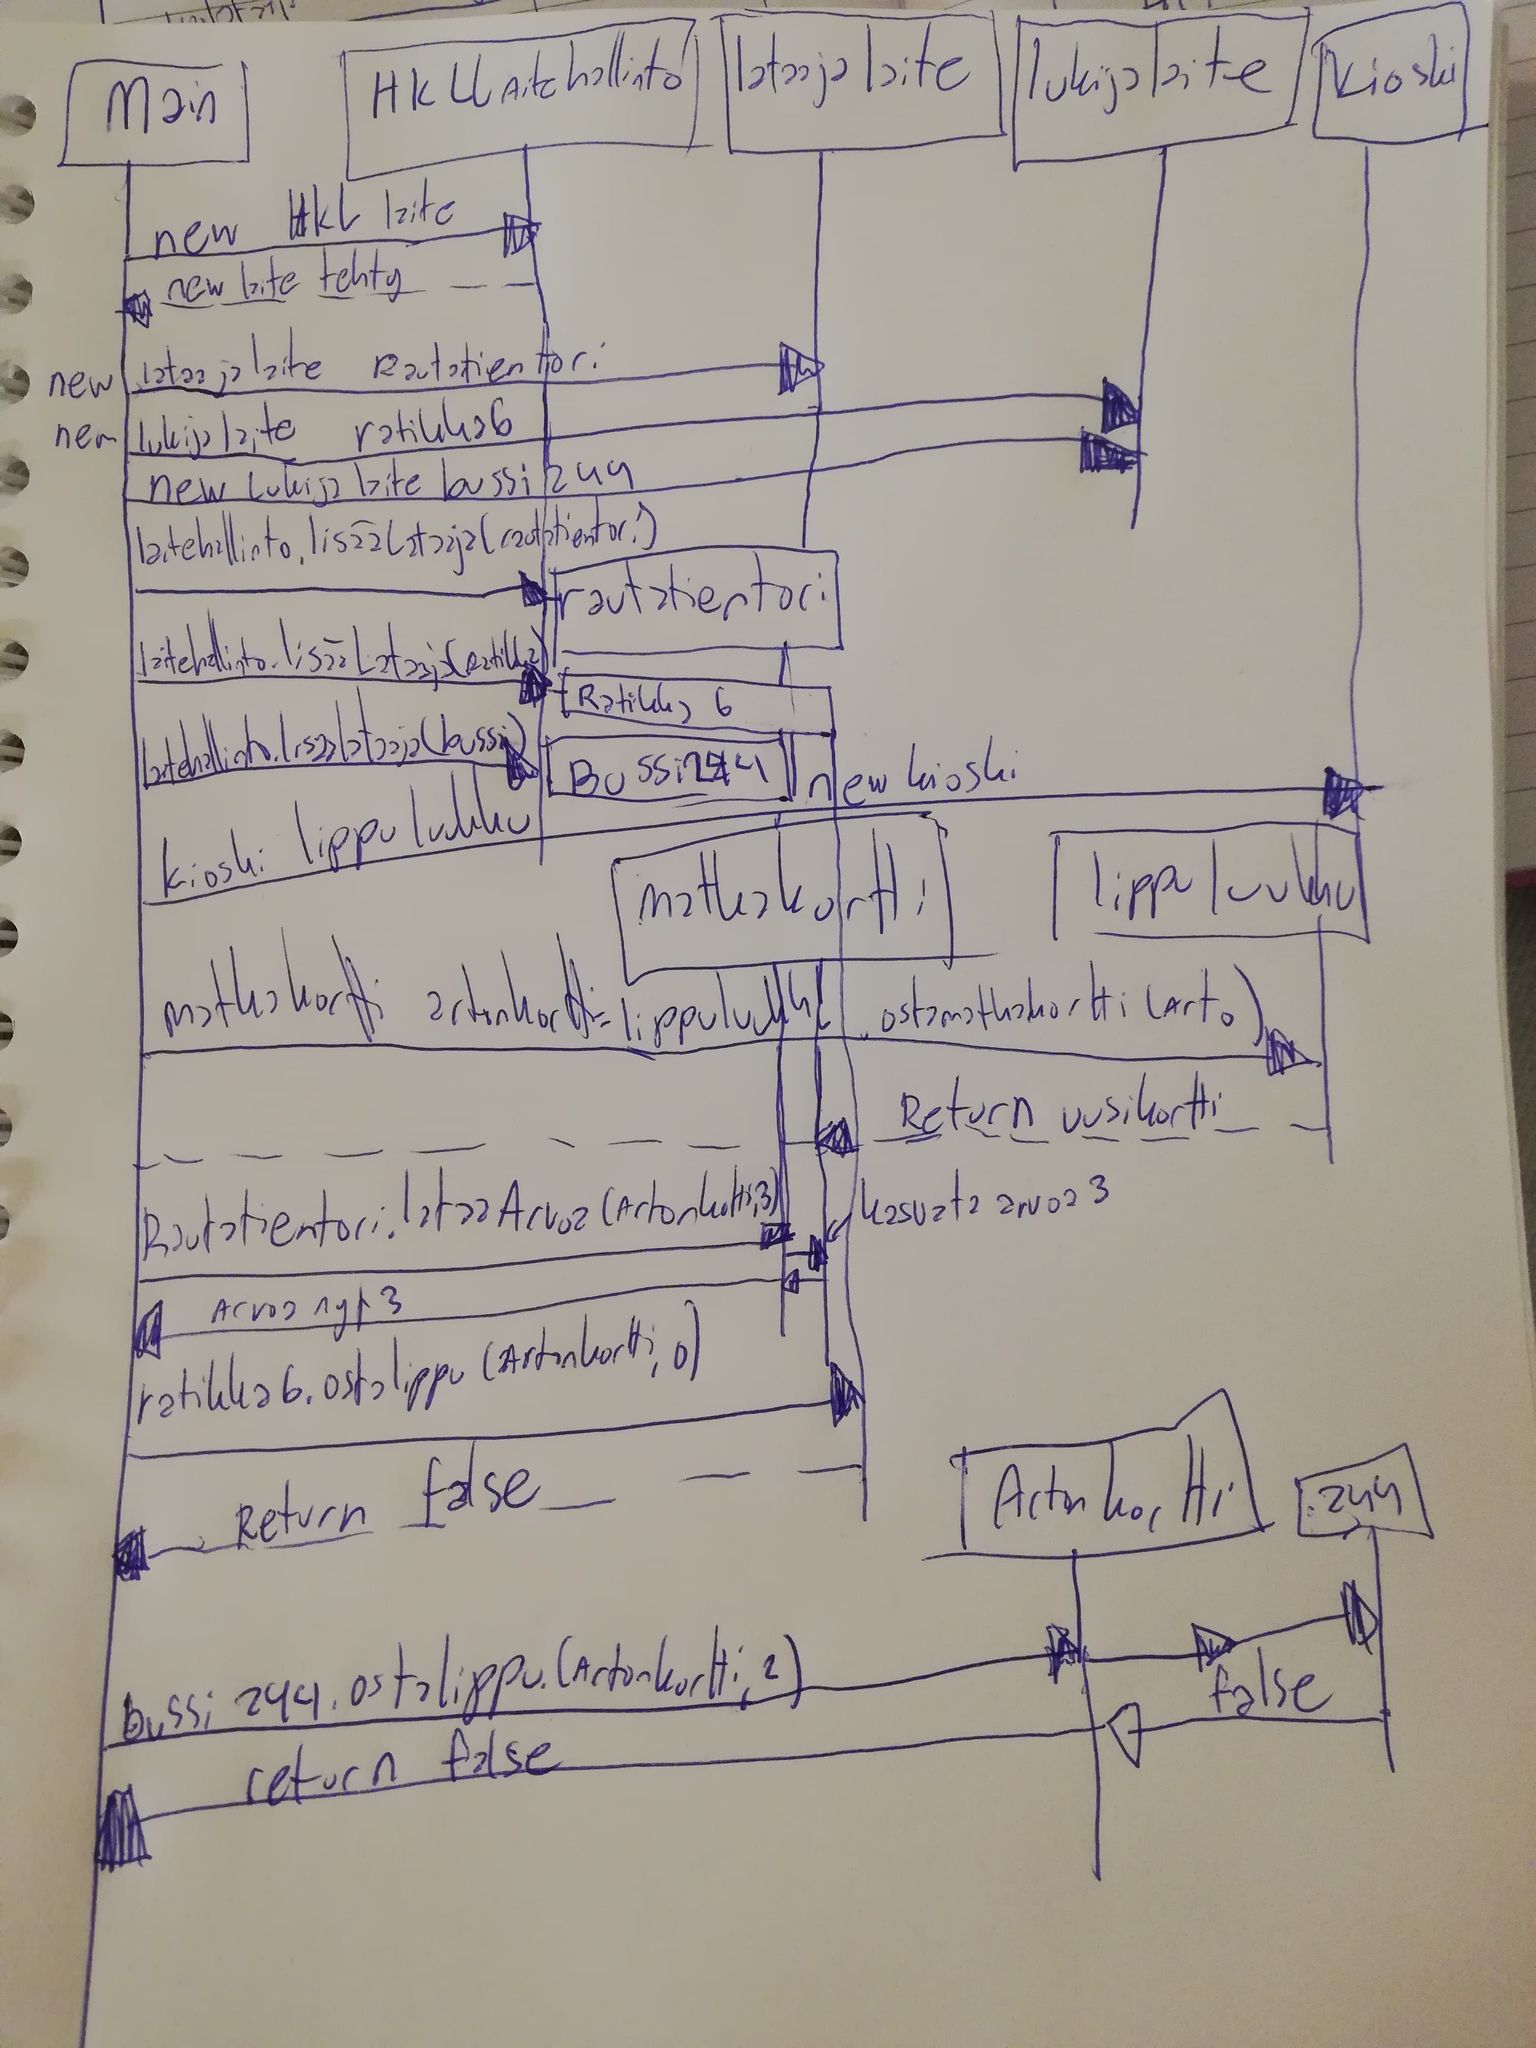 Main
HKLLAitehallinto
lataajalaite
lukijalaite
Kioski
new HKL laite
new laite tehty
new lataajalaite Rautatientori
new lukijalaite ratikka6
new lukijalaite bussi 244
laitehallinto.lisääLataaja(rautatientori)
rautatientori
laitehallinto.lisääLataaja(Ratikka)
Ratikka 6
laitehallinto.lisaalataaja(bussi)
Bussi244
new kioski
kioski lippuluukku
matkakortti
lippuluukku
matkakortti artonkortti=lippuluukku.ostamatkakortti(Arto)
Return uusikortti
Rautatientori.lataaArvoa(Artonkortti,3)
kasvata arvoa 3
Arvoa nyt 3
ratikka6.ostalippu(Artonkortti,0)
Return false
Artonkortti
244
Bussi 244.ostalippu.(Artonkortti,2)
false
return false